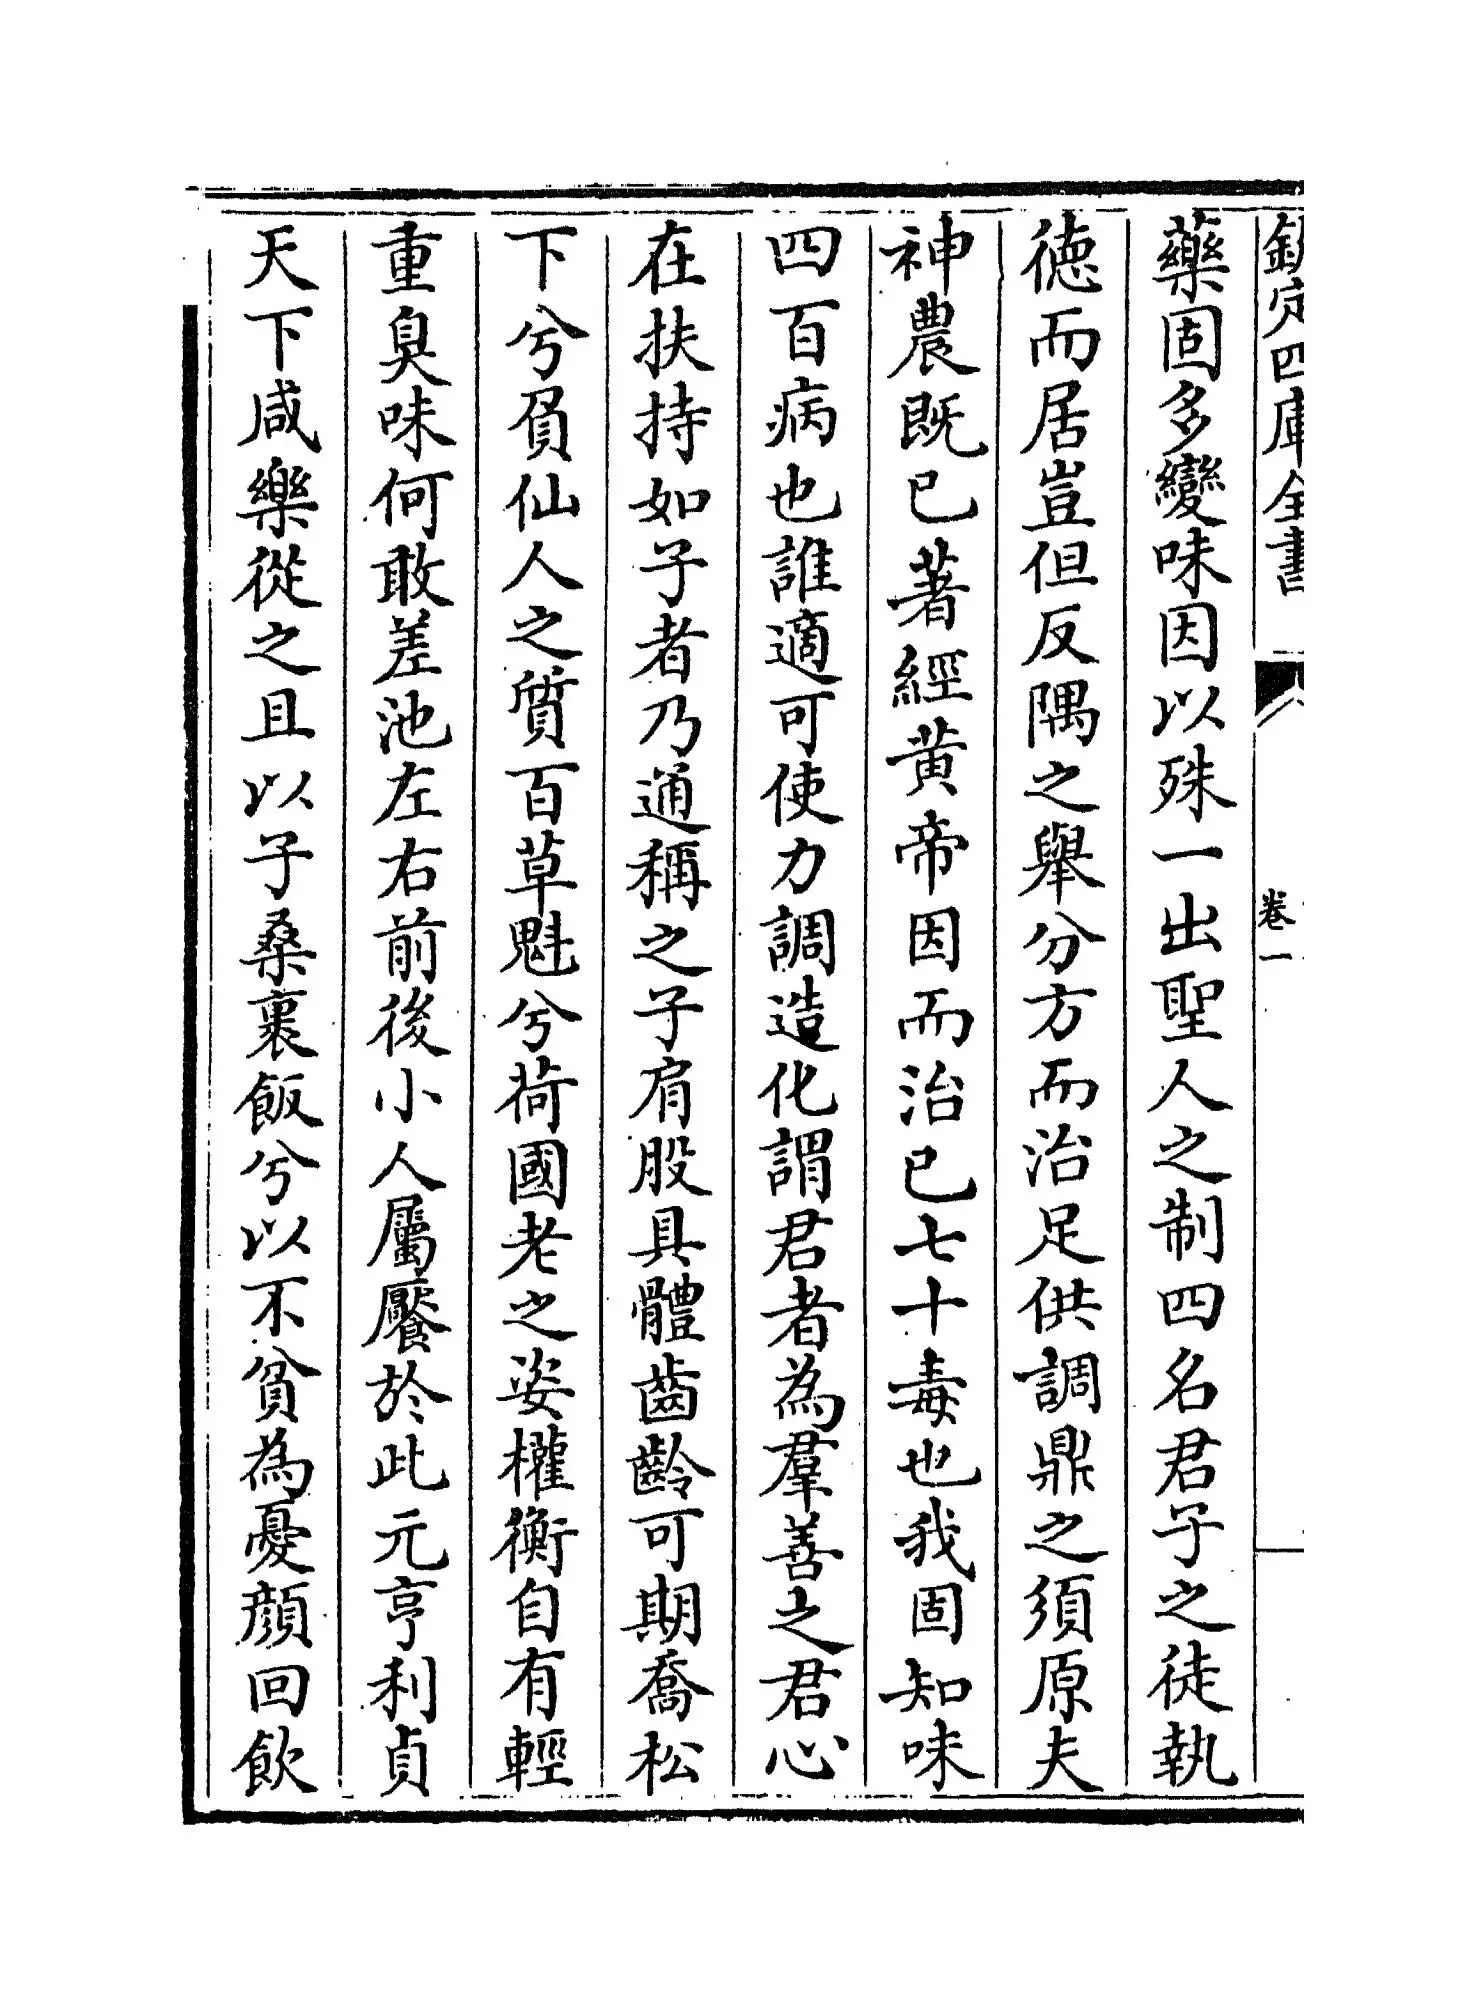 欽定四庫全書
卷一
藥固多變味因以殊一出聖人之制四名君子之徒執
徳而居豈但反隅之舉分方而治足供調鼎之須原夫
神農既已著經黄帝因而治已七十毒也我固知味
四百病也誰適可使力調造化謂君者為羣善之君心
在扶持如子者乃通稱之子肩股具體齒齡可期喬松
下兮負仙人之質百草魁兮荷國老之姿權衡自有輕
重臭味何敢差池左右前後小人屬饜於此元亨利貞
天下咸樂從之且以子桑裹飯兮以不貧為憂顔回飲